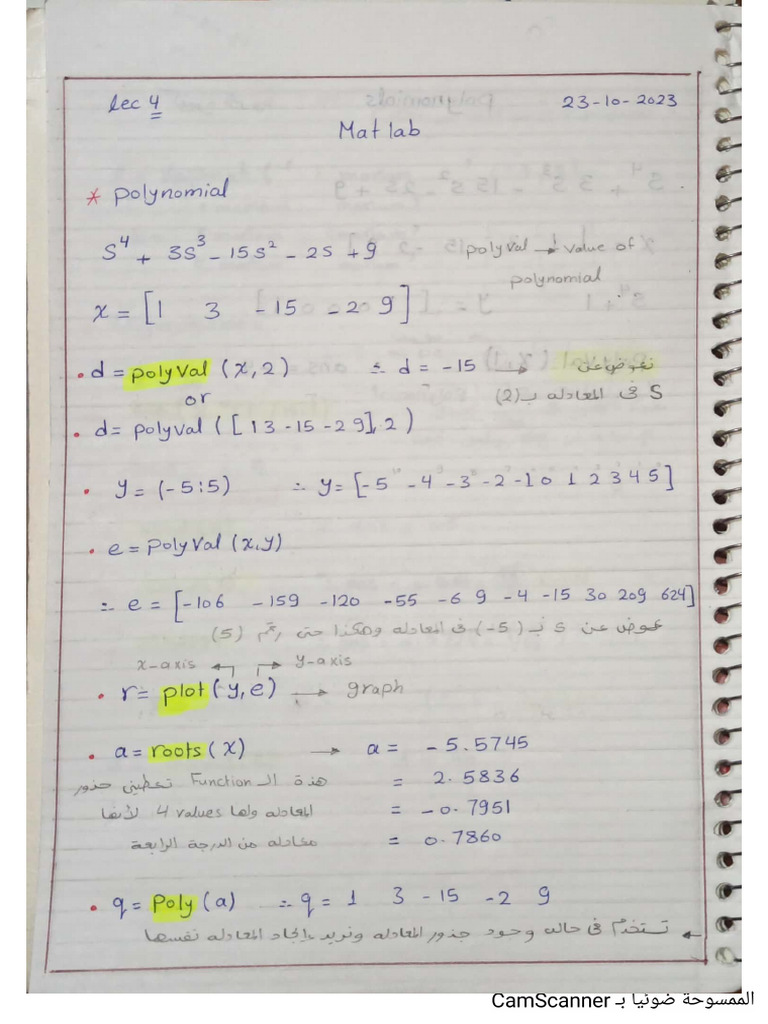 lec 4
23-10-2023
Matlab
* polynomial
S⁴ + 3S³ - 15S² - 2S + 9
polyval → value of
polynomial
x = [1 3 -15 -2 9]
• d = polyval (x, 2) ∴ d = -15 → نعوض عن
S فى المعادله بـ(2)
or
• d = polyval ([1 3 -15 -2 9], 2)
• y = (-5:5) ∴ y = [-5 -4 -3 -2 -1 0 1 2 3 4 5]
• e = polyval (x,y)
∴ e = [-106 -159 -120 -55 -6 9 -4 -15 30 209 624]
عوض عن S بـ (-5) فى المعادله وهكذا حتى رقم (5)
x-axis ← → y-axis
• r = plot (y,e) → graph
• a = roots (x) → a = -5.5745
هذة الـ Function تعطينى جذور = 2.5836
المعادله ولها 4 values لأنها = -0.7951
معادله من الدرجة الرابعة = 0.7860
• q = Poly (a) ∴ q = 1 3 -15 -2 9
← تستخدم فى حاله وجود جذور المعادله ونريد إيجاد المعادله نفسها
الممسوحة ضوئيا بـ CamScanner